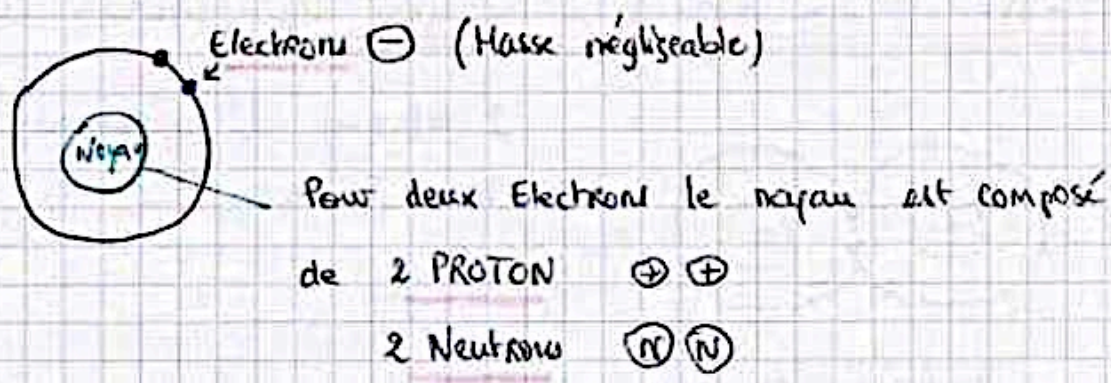 Electrons ⊖ (Masse négligeable)
Noyau
Pour deux Electrons le noyau est composé
de 2 PROTON ⊕ ⊕
2 Neutrons Ⓝ Ⓝ